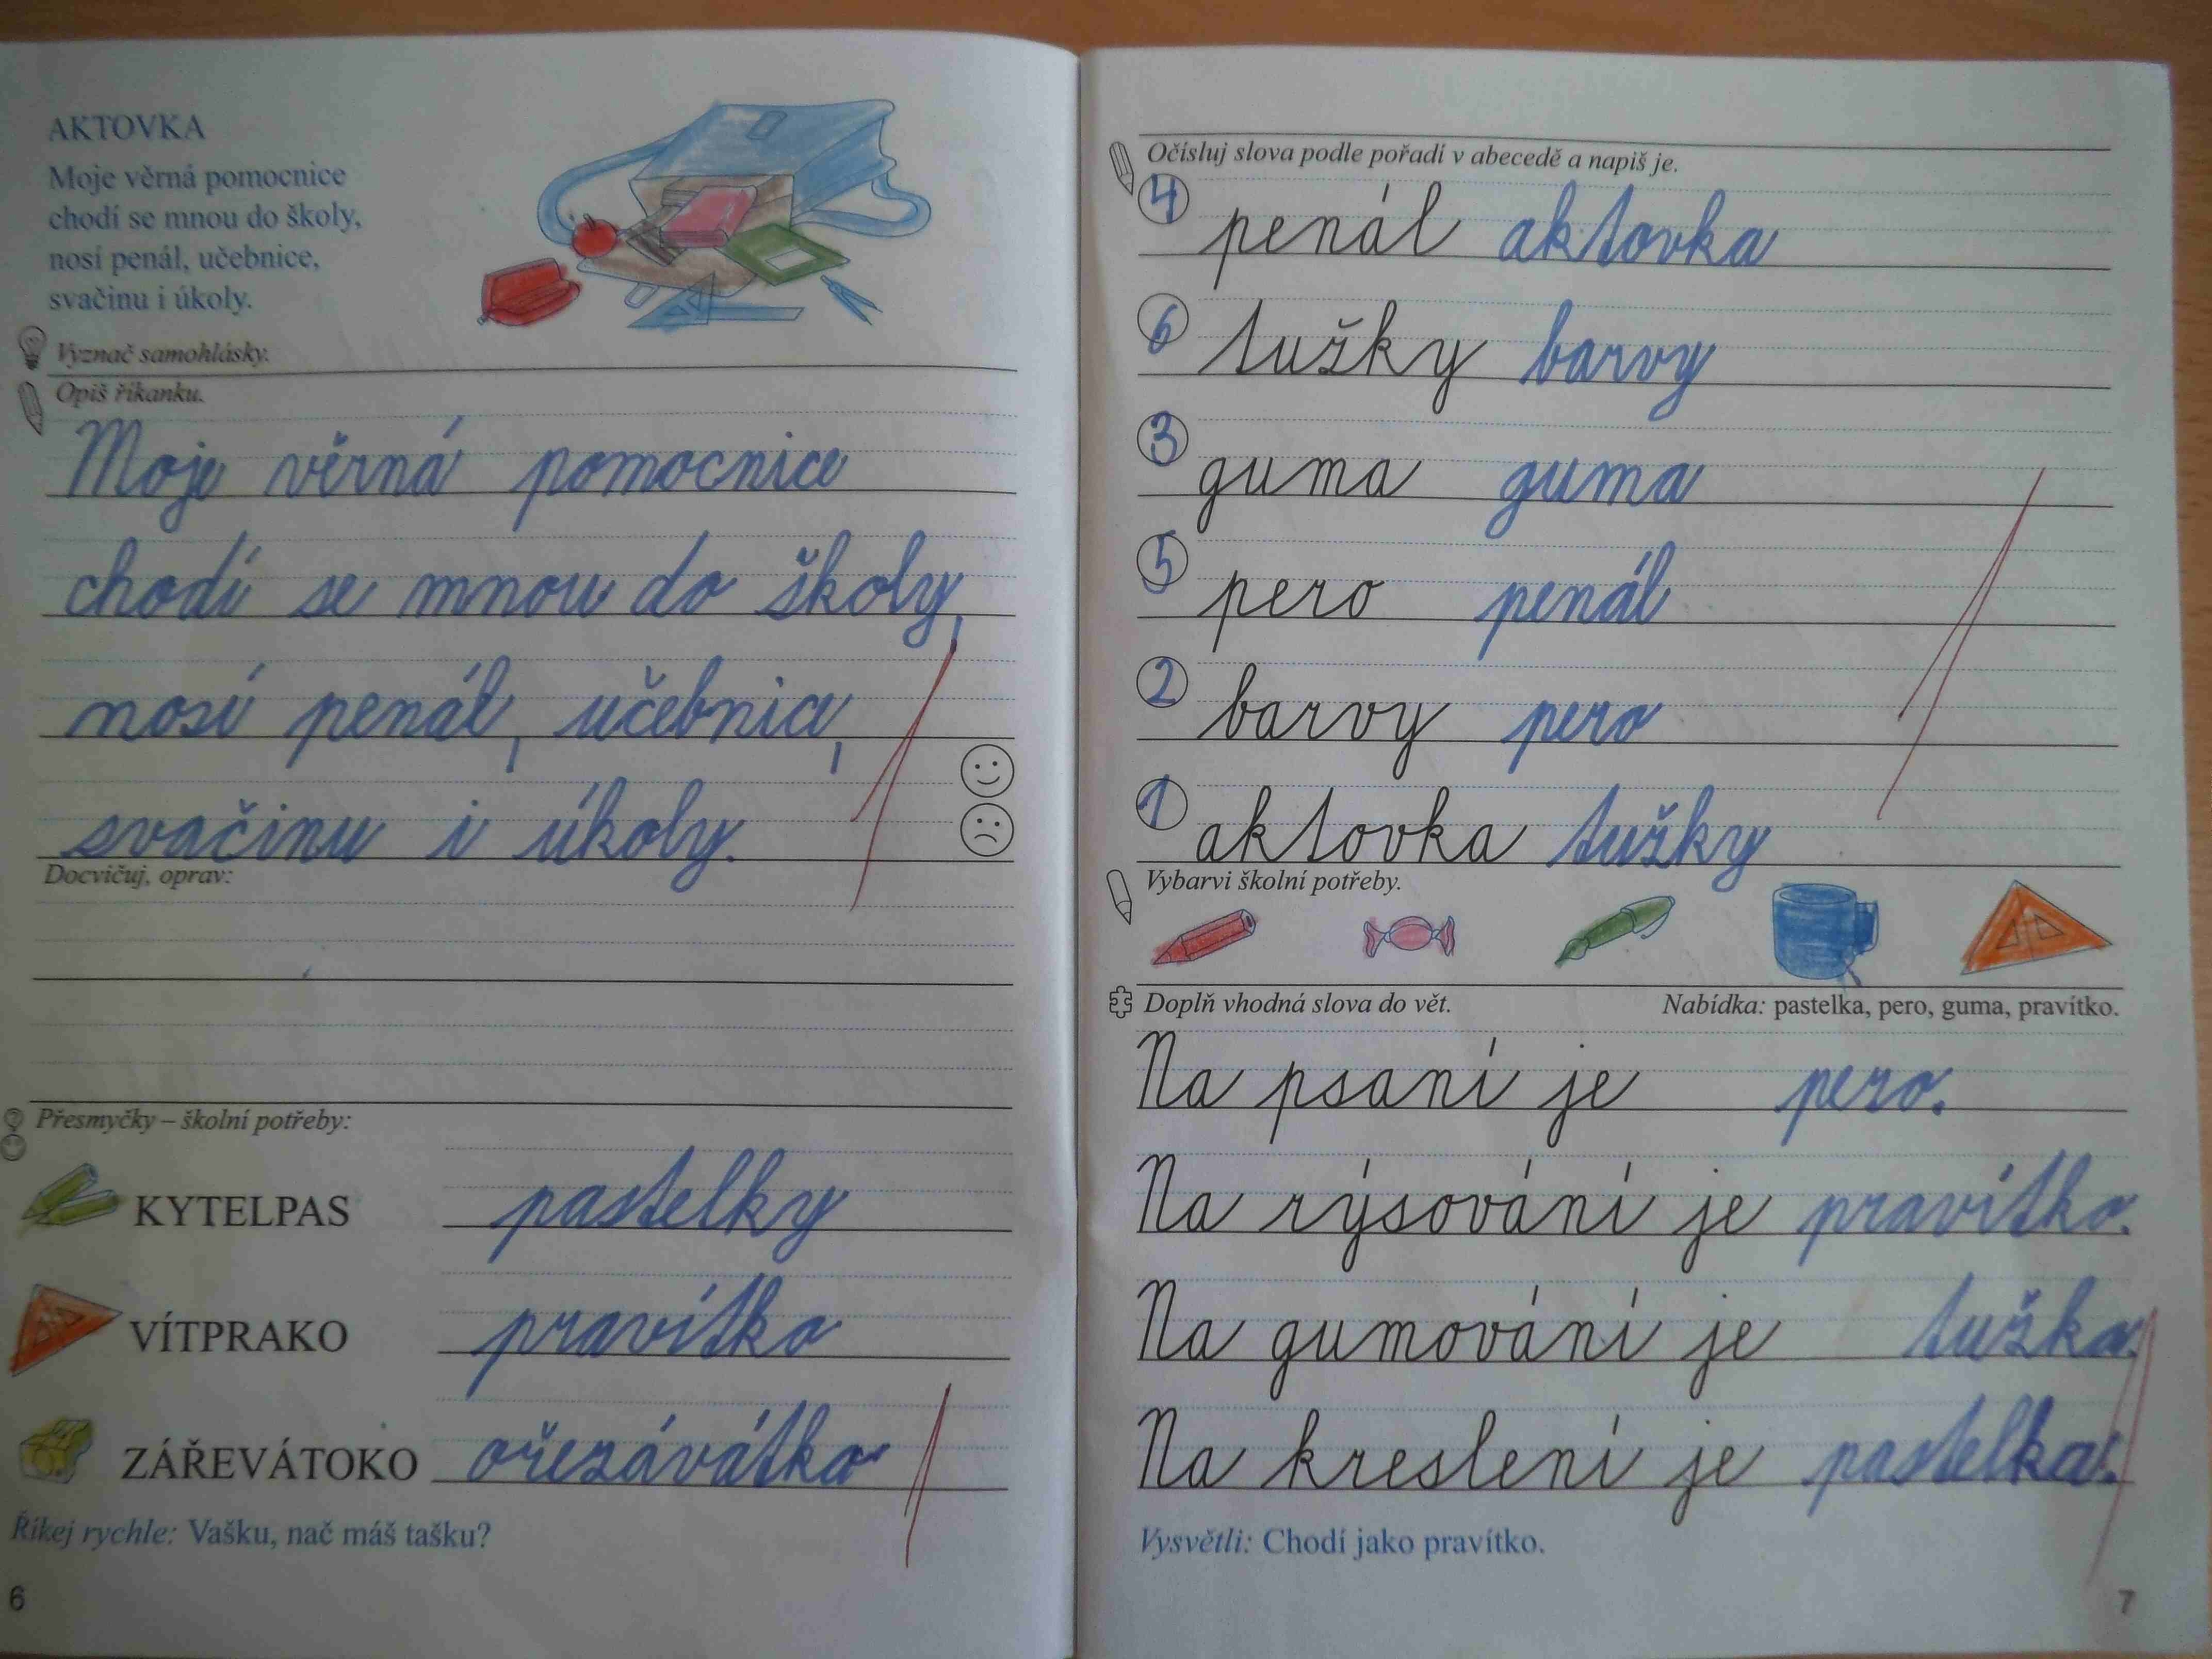 AKTOVKA
Moje věrná pomocnice
chodí se mnou do školy,
nosí penál, učebnice,
svačinu i úkoly.
Vyznač samohlásky.
Opiš říkanku.
Moje věrná pomocnice
chodí se mnou do školy,
nosí penál, učebnice,
svačinu i úkoly.
Docvičuj, oprav:
Přesmyčky – školní potřeby:
KYTELPAS pastelky
VÍTPRAKO pravítko
ZÁŘEVÁTOKO ořezávátko
Říkej rychle: Vašku, nač máš tašku?
6
Očísluj slova podle pořadí v abecedě a napiš je.
4 penál aktovka
6 tužky barvy
3 guma guma
5 pero penál
2 barvy pero
1 aktovka tužky
Vybarvi školní potřeby.
Doplň vhodná slova do vět. Nabídka: pastelka, pero, guma, pravítko.
Na psaní je pero.
Na rýsování je pravítko.
Na gumování je tužka.
Na kreslení je pastelka.
Vysvětli: Chodí jako pravítko.
7